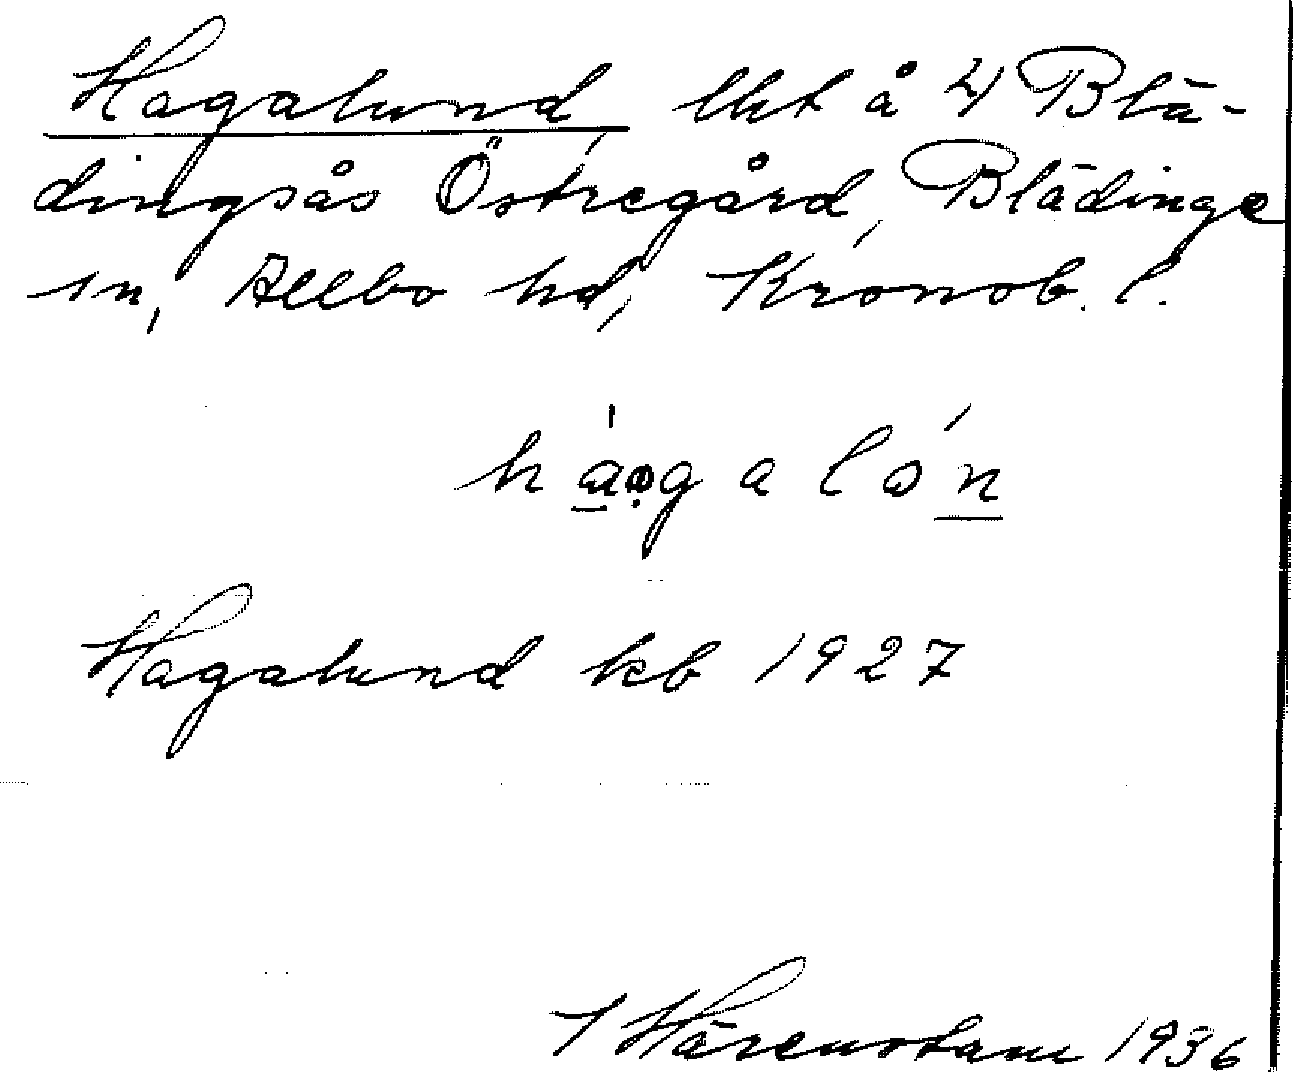 Hagalund, lht å 4 Blä-
dingsås Östregård, Blädinge
sn, Allbo hd, Kronob. l.
Hagalund kb 1927
Härenstam 1936